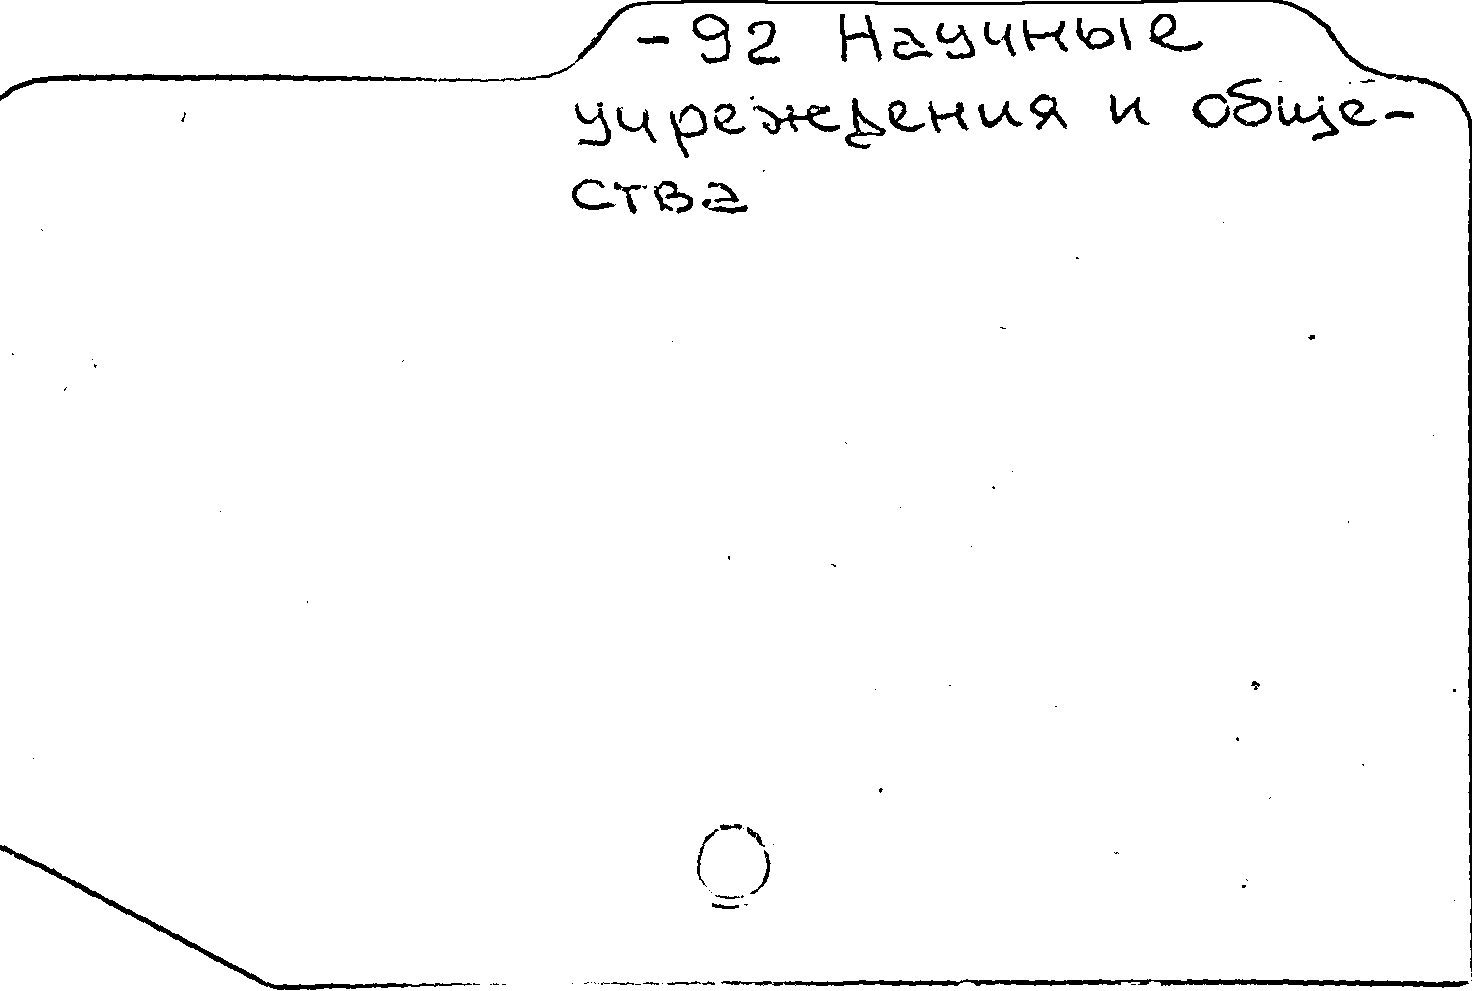 -92 Научные
учреждения и обще-
ства